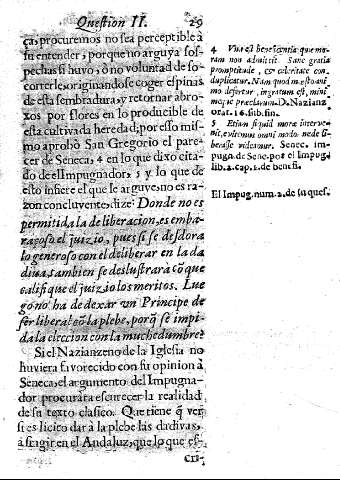 Question II. 29
ça, procuremos no sea perceptible à
su entender, porque no arguya sos-
pechas si huvo, ò no voluntad de so-
correrle, originandose coger espinas
de esta sembradura, y retornar abro-
xos por flores en lo producible de
esta cultivada heredad; por esso mis-
mo aprobò San Gregorio el pare-
cer de Seneca, 4 en lo que dixo cita-
do de el Impugnador, 5 y lo que de
esto infiere el que le arguye, no es ra-
zon concluyente, dize: Donde no es
permitida la deliberacion, es emba-
raçoso el juizio, pues si se desdora
lo generoso con el deliberar en la da
diva, tambien se deslustrarà cõ que
califique el juizio los meritos. Lue
go nò ha de dexar un Principe de
ser liberal cõ la plebe, porq̃ se impi-
da la eleccion con la muchedumbre?
Si el Nazianzeno de la Iglesia no
huviera favorecido con su opinion à
Seneca, el argumento del Impugna-
dor procurara escurecer la realidad
de su texto clasico. Que tiene q̃ ver
si es licito dar à la plebe las dadivas,
à fingir en el Andaluz, que lo que es-
cri-
4 Vitæ el beneficentia que mo-
ram non admittit. Sanc gratia
promptitude, & celeritate con-
duplicatur. Nam quod in est ani-
mo defertur, ingratum est, mini
mèq; præclarum. D. Nazianz.
orat. 16. sub. fin.
5 Etiam si quid moræ interve-
nit, evitemus omni modo ne de li-
berasse videamur. Senec. im-
pugn. de Sene. por el Impug.
lib. 2. cap. 1. de benefi.
El Impug. num. 2. de su quest.